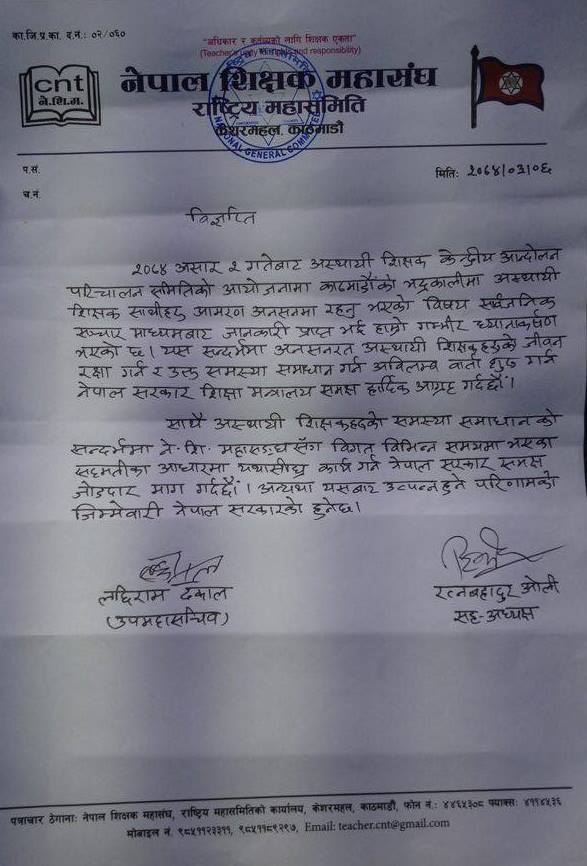 का.जि.प्र.का. द.नं.: ०२/०६०
"अधिकार र कर्तव्यको लागि शिक्षक एकता"
(Teacher's unity for rights and responsibility)
cnt
ने.शि.म.
नेपाल शिक्षक महासंघ
राष्ट्रिय महासमिति
केशरमहल, काठमाडौं
NATIONAL GENERAL COMMITTEE
प.सं.
मितिः २०६४/०३/०६
च.नं.
विज्ञप्ति
२०६४ असार २ गतेबाट अस्थायी शिक्षक केन्द्रीय आन्दोलन
परिचालन समितिको आयोजनामा काठमाडौंको भद्रकालीमा अस्थायी
शिक्षक साथीहरु आमरण अनसनमा रहनु भएको विषय सार्वजनिक
सञ्चार माध्यमबाट जानकारी प्राप्त भई हाम्रो गम्भीर ध्यानाकर्षण
भएको छ। यस सन्दर्भमा अनसनरत अस्थायी शिक्षकहरुको जीवन
रक्षा गर्न र उक्त समस्या समाधान गर्न अविलम्ब वार्ता शुरु गर्न
नेपाल सरकार शिक्षा मन्त्रालय समक्ष हार्दिक आग्रह गर्दछौं।
साथै अस्थायी शिक्षकहरुको समस्या समाधान को
सन्दर्भमा ने. शि. महासङ्घसँग विगत् विभिन्न समयमा भएका
सहमतीका आधारमा यथासीघ्र कार्य गर्न नेपाल सरकार समक्ष
जोडदार माग गर्दछौं। अन्यथा यसबाट उत्पन्न हुने परिणामको
जिम्मेवारी नेपाल सरकारको हुनेछ।
लद्दिराम ढकाल
(उपमहासचिव)
रत्नबहादुर ओली
सह-अध्यक्ष
पत्राचार ठेगानाः नेपाल शिक्षक महासंघ, राष्ट्रिय महासमितिको कार्यालय, केशरमहल, काठमाडौं, फोन नं.: ४४६५३०८ फ्याक्सः ४११४५३६
मोबाइल नं. ९८५११२३३११, ९८५११८९२९७, Email: teacher.cnt@gmail.com